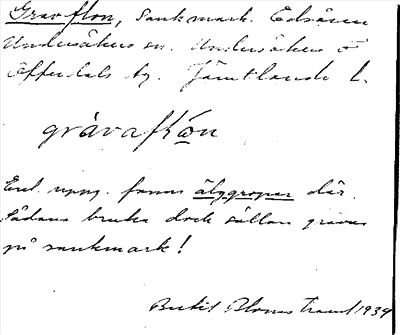 Gravflon, Sankmark. Edsåsen
Undersåkers sn. Undersåkers o
Offerdals tg. Jämtlands l.
gråvaflôn
Enl. uppg. fanns älggropar där.
Sådana bruka dock sällan grävas
på sankmark!
Bertil Blomstrand 1939